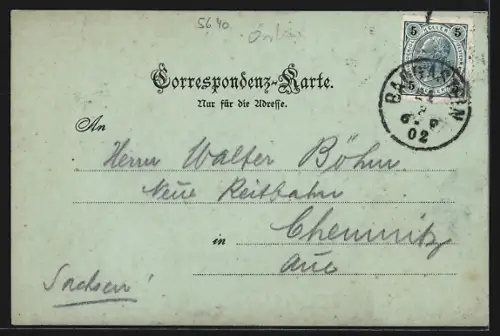 5640
5 HELLER 5
Correspondenz-Karte.
Nur für die Adresse.
BAD GASTEIN
6-9
02
An
Herrn Walter Böhm
Neue Reitbahn
in Chemnitz
Aue
Sachsen!